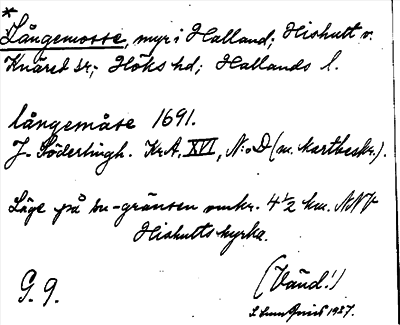 *
Långemosse, myr i Halland; Hishult o.
Knäred sr; Höks hd; Hallands l.
långemåse 1691.
J. Söderlingh. Kr.A. XVI, N:o D (m. kartbeskr.).
Läge på sn-gränsen omkr. 4 1/2 km. NNV
Hishults kyrka.
G. 9.
(Vänd!)
1927.